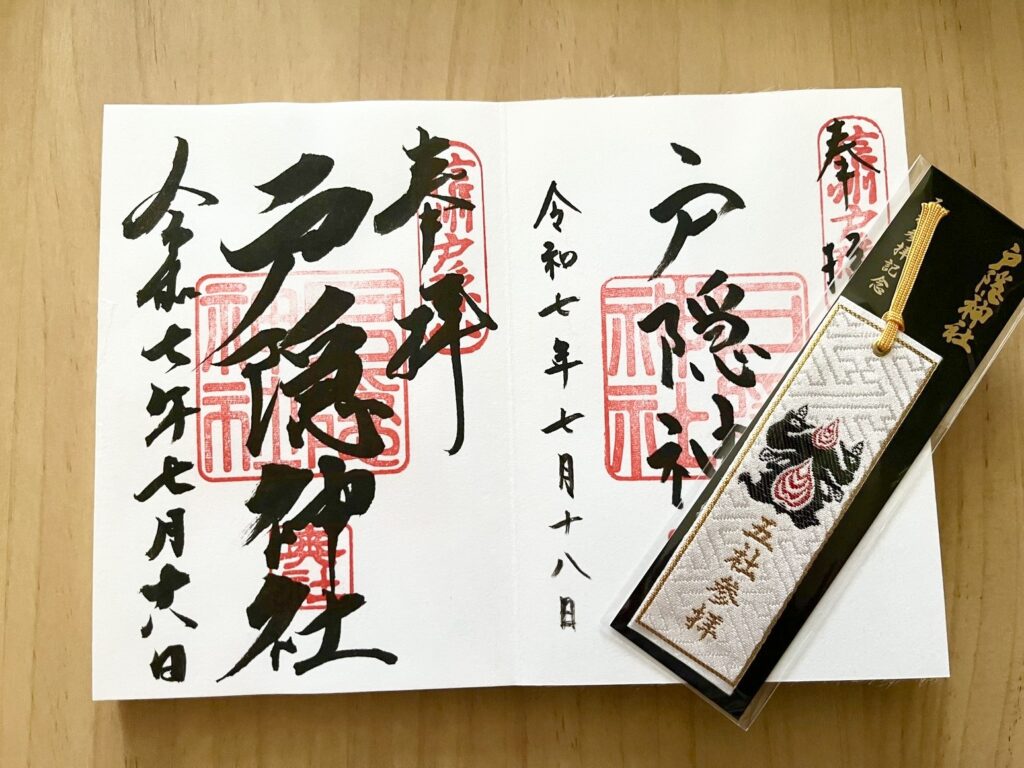 奉拝
信州戸隠
戸隠神
令和七年七月十八日
戸隠神社
拝記念
五社参拝
奉拝
信州戸隠
戸隠神社
戸隠神社
奥社
令和七年七月十八日